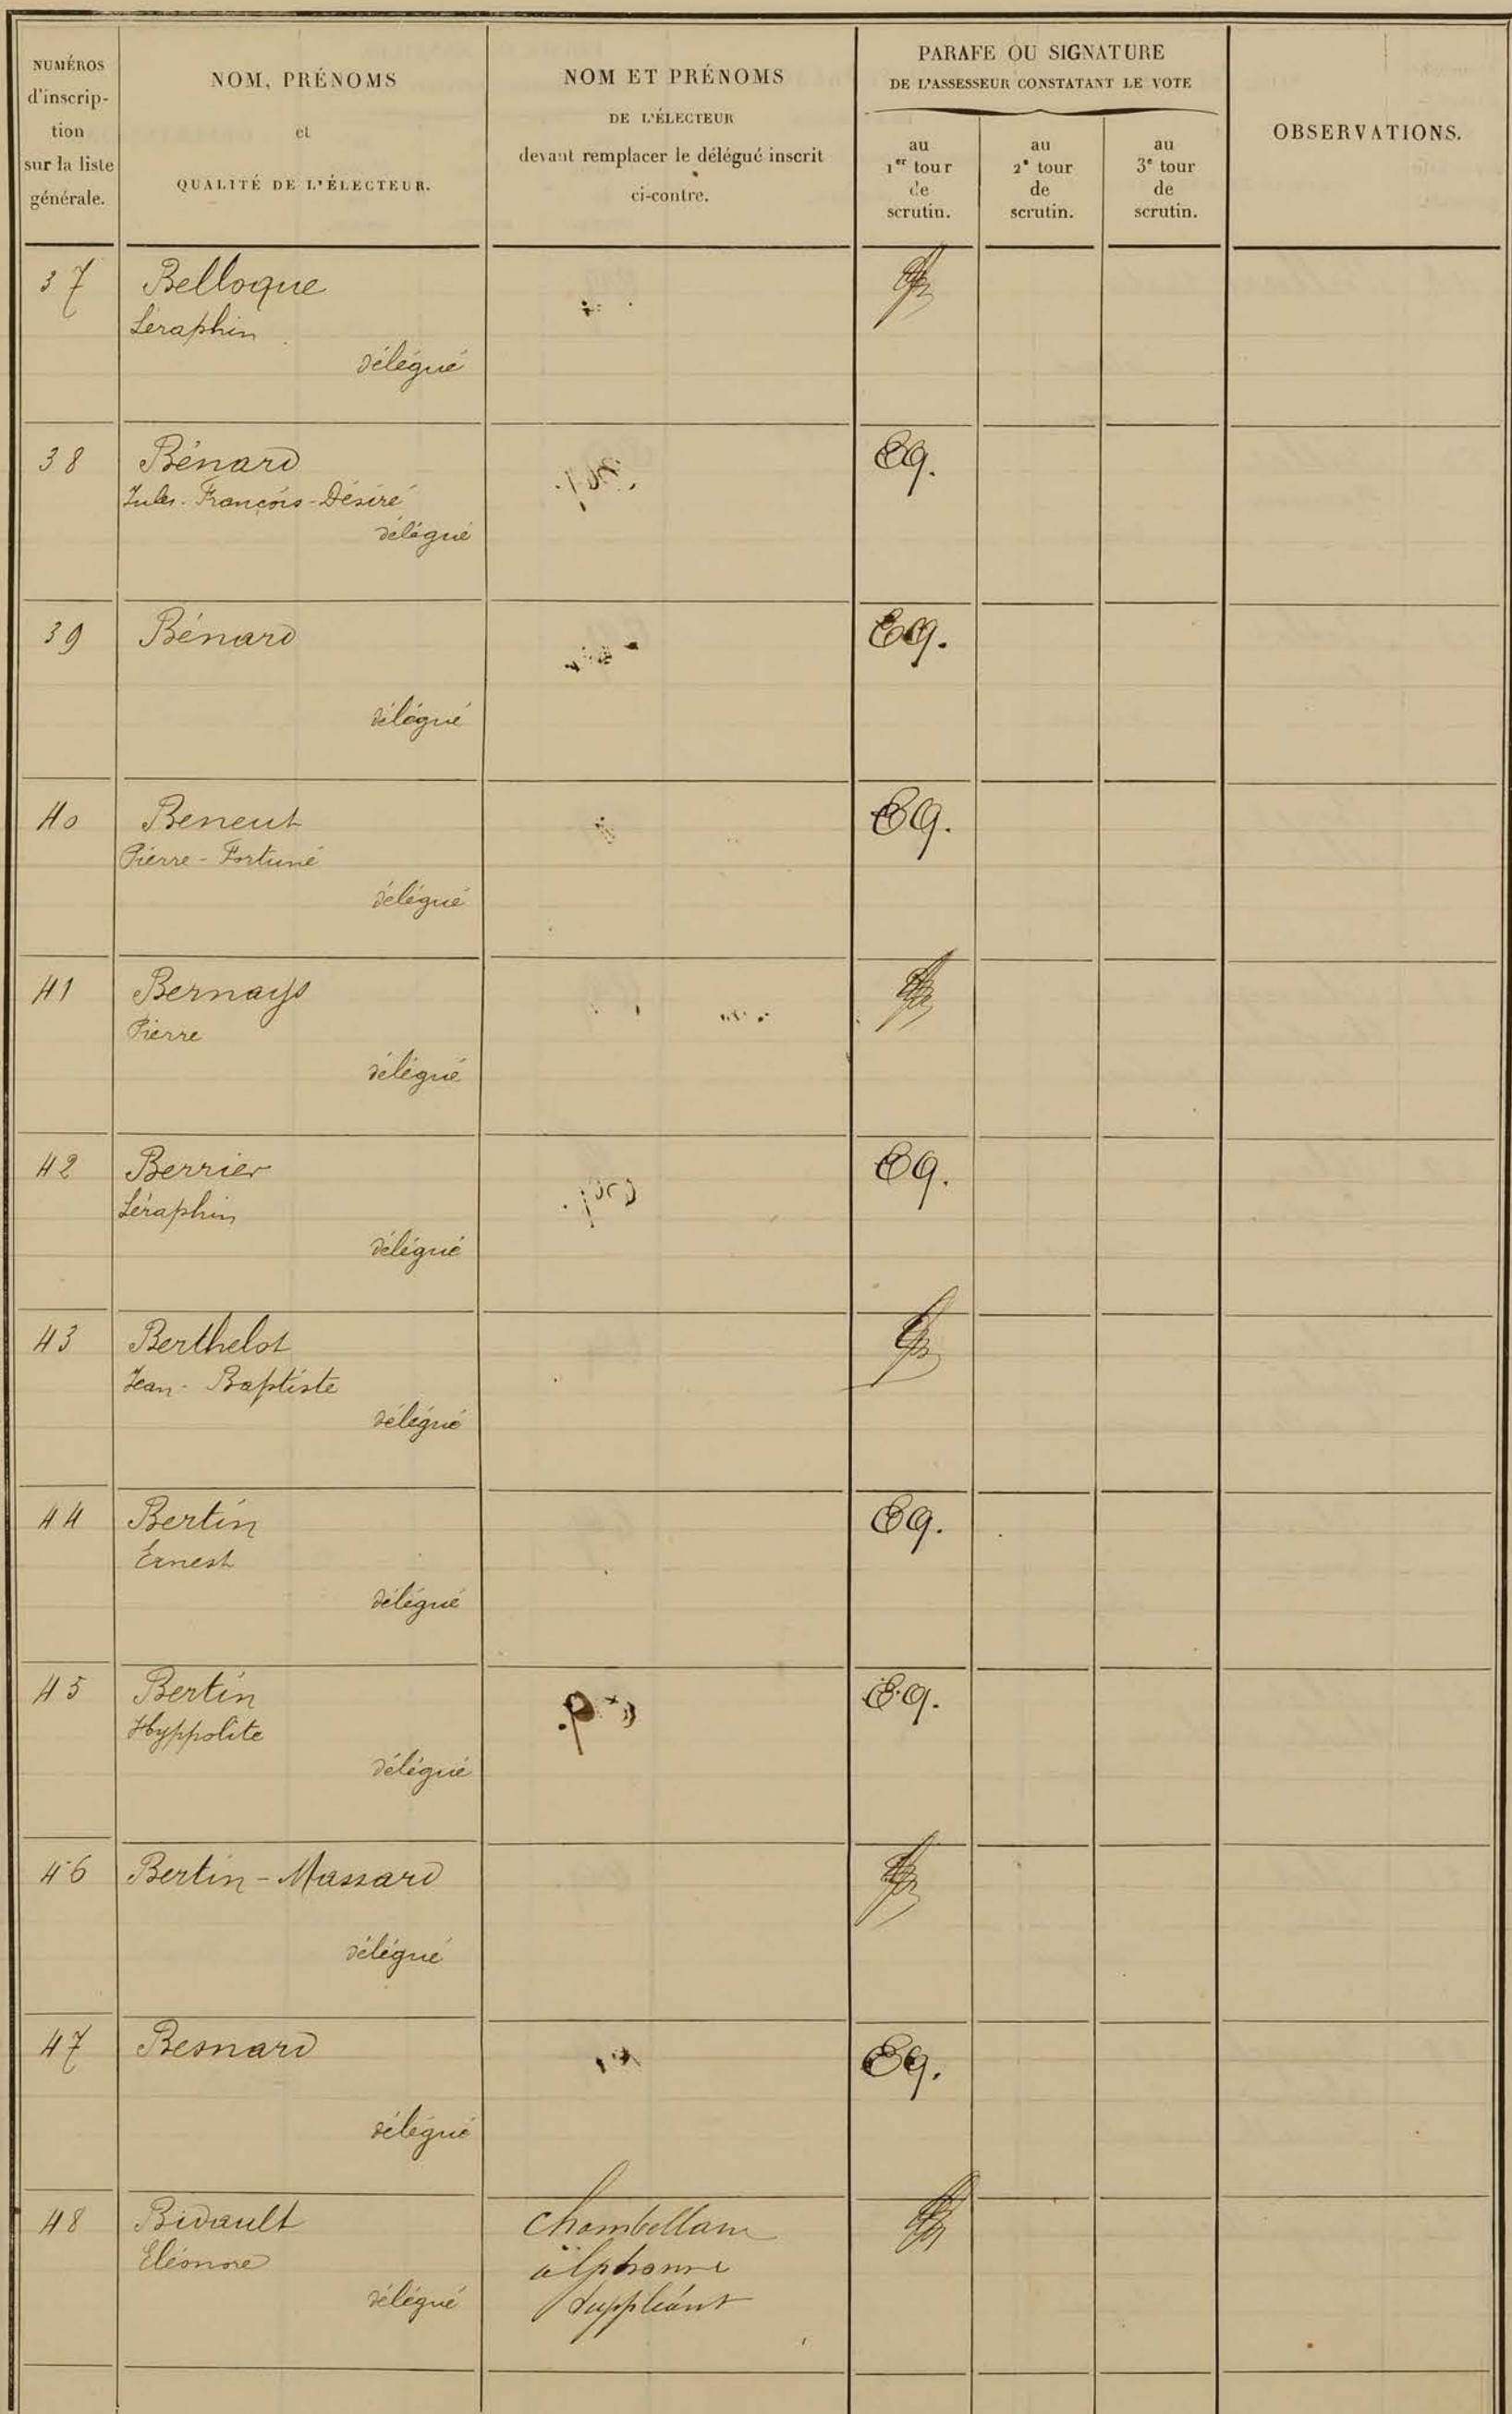 NUMÉROS
d'inscrip-
tion
sur la liste
générale.
NOM, PRÉNOMS
et
QUALITÉ DE L'ÉLECTEUR.
NOM ET PRÉNOMS
DE L'ÉLECTEUR
devant remplacer le délégué inscrit
ci-contre.
PARAFE OU SIGNATURE
DE L'ASSESSEUR CONSTATANT LE VOTE
au
1er tour
de
scrutin.
au
2e tour
de
scrutin.
au
3e tour
de
scrutin.
OBSERVATIONS.
37 Belloque
Séraphin
délégué
38 Bénard
Jules-François-Désiré
délégué
Eg.
39 Bénard
délégué
Eg.
40 Beneut
Pierre-Fortuné
délégué
Eg.
41 Bernays
Pierre
délégué
42 Berrier
Séraphin
délégué
Eg.
43 Berthelot
Jean-Baptiste
délégué
44 Bertin
Ernest
délégué
Eg.
45 Bertin
Hyppolite
délégué
Eg.
46 Bertin-Massard
délégué
47 Besnard
délégué
Eg.
48 Bidault
Eléonore
délégué
Chambellan
alphonse
suppléant